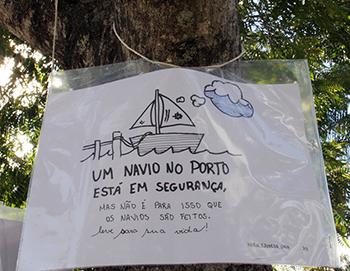 UM NAVIO NO PORTO
ESTÁ EM SEGURANÇA,
MAS NÃO É PARA ISSO QUE
OS NAVIOS SÃO FEITOS.
leve para sua vida!